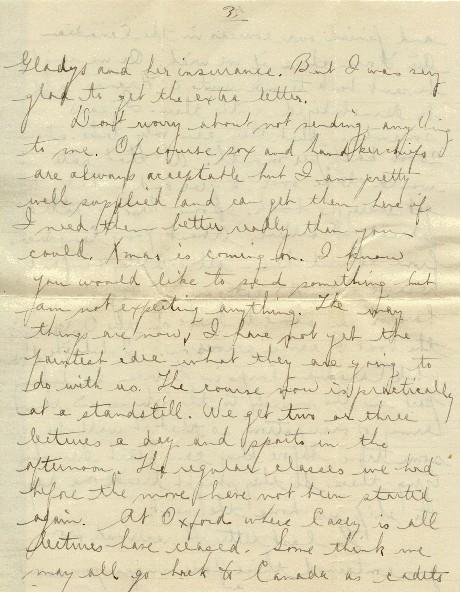 3.
Gladys and her insurance. But I was very
glad to get the extra letter.
Don't worry about not sending anything
to me. Of course sox and handkerchiefs
are always acceptable but I am pretty
well supplied and can get them here if
I need them better really than you
could. Xmas is coming on. I know
you would like to send something but
I am not expecting anything. The way
things are now, I have not yet the
faintest idea what they are going to
do with us. The course now is practically
at a standstill. We get two or three
lectures a day and sports in the
afternoon. The regular classes we had
before the move have not been started
again. At Oxford where Casey is all
lectures have ceased. Some think we
may all go back to Canada as cadets